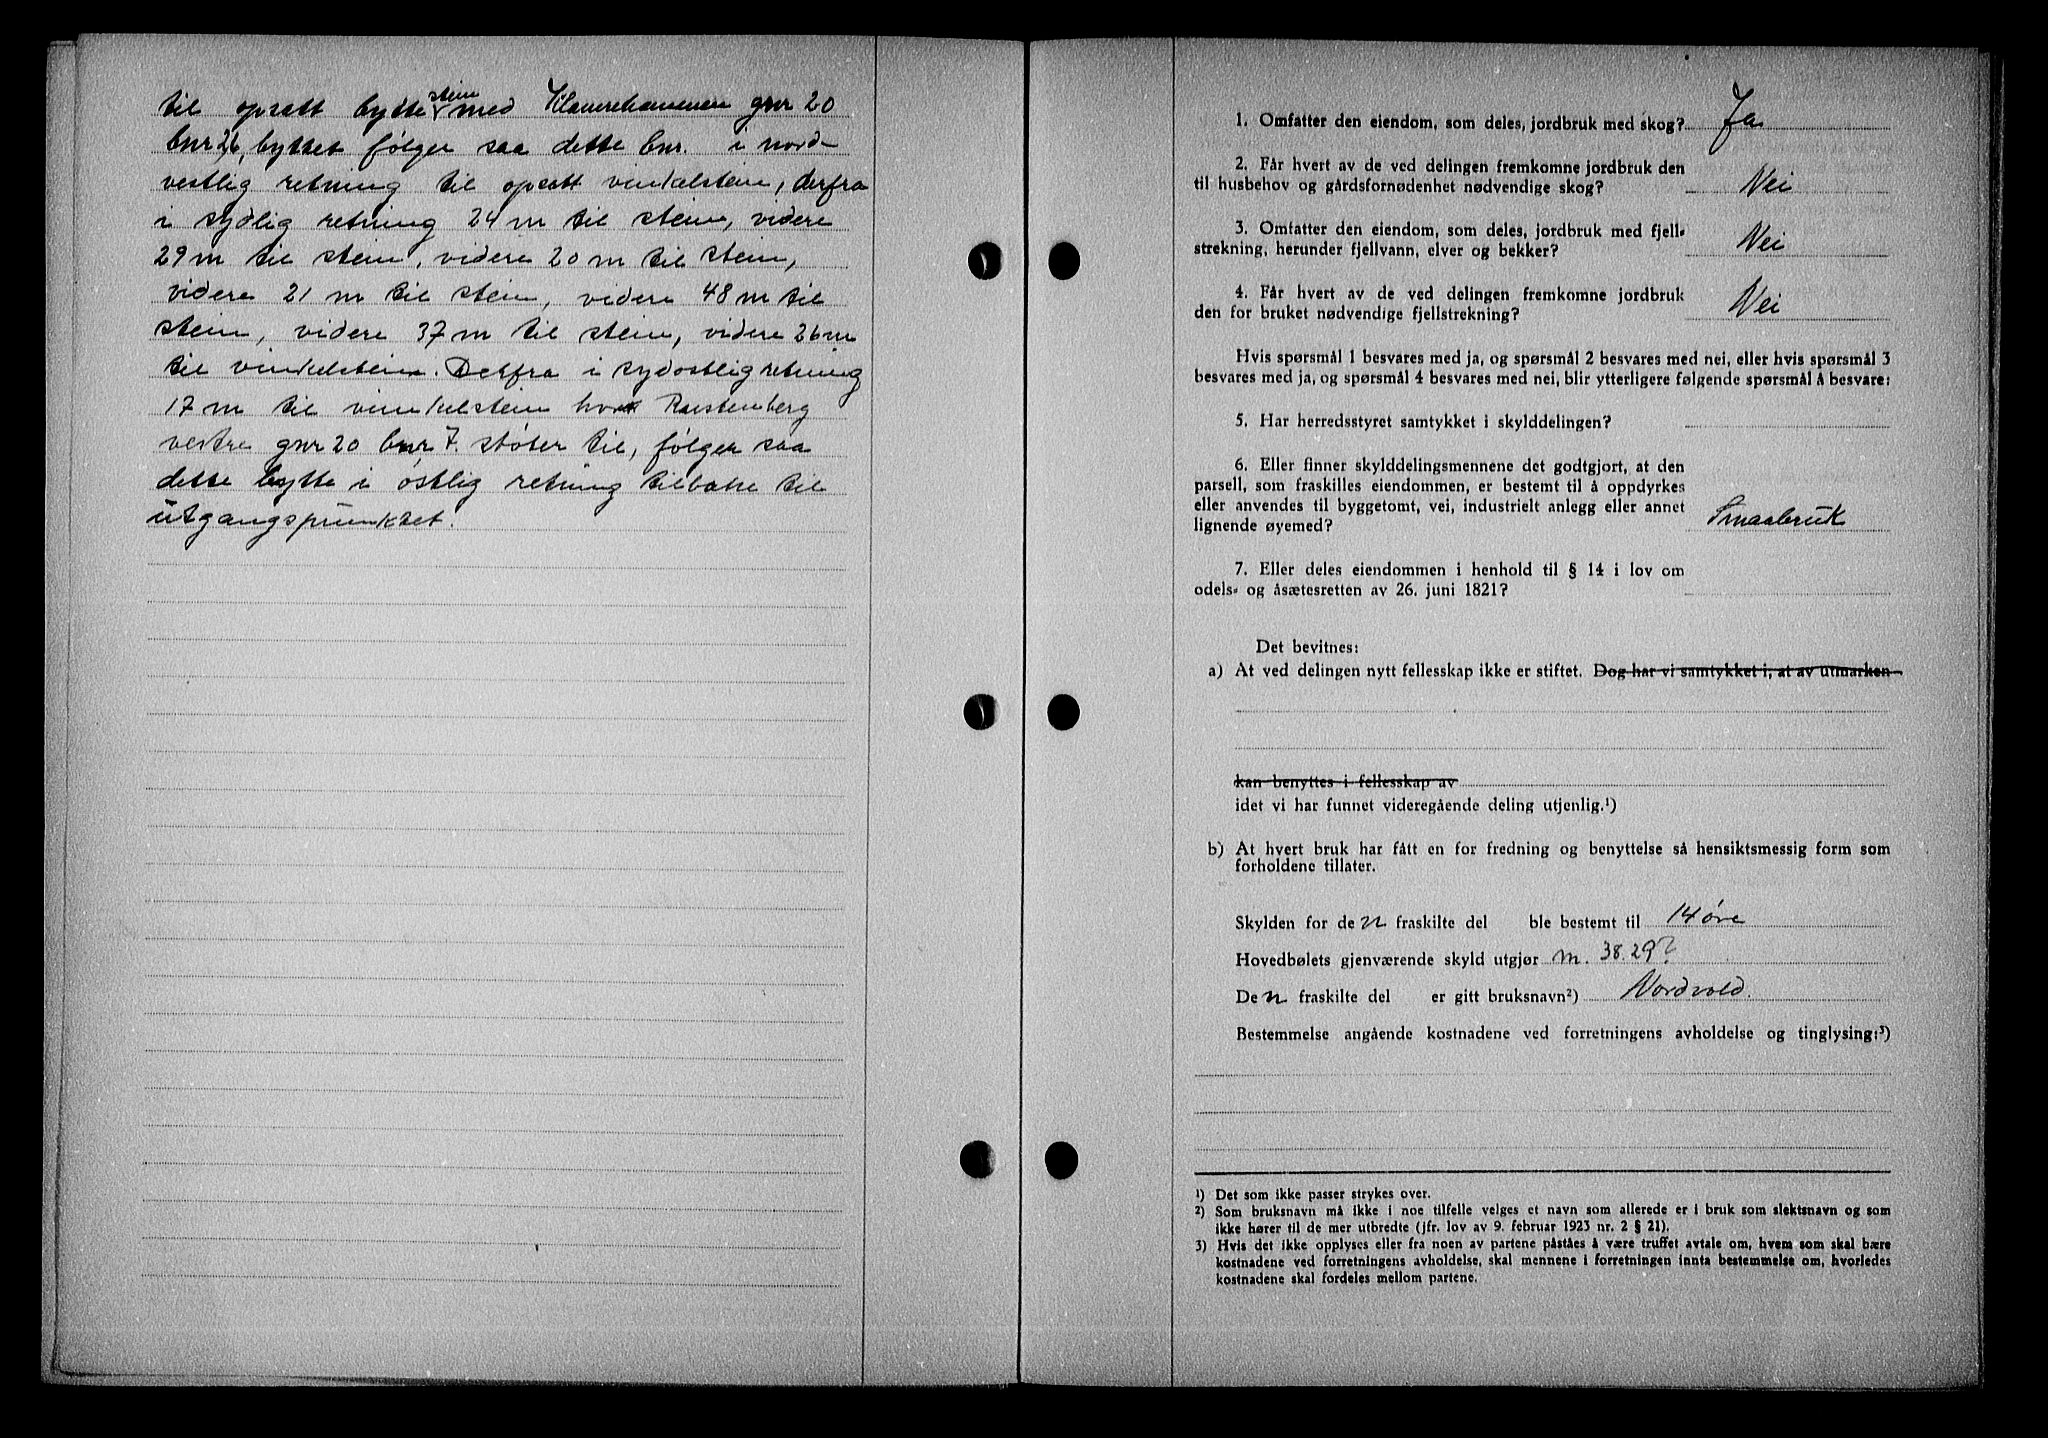 til opsatt bytte stein med Klauvehammeren gnr 20
bnr 26, byttet følger saa dette bnr. i nord-
vestlig retning til opsatt vinkelstein, derfra
i sydlig retning 24 m til stein, videre
29 m til stein, videre 20 m til stein,
videre 21 m til stein, videre 48 m til
stein, videre 37 m til stein, videre 26 m
til vinkelstein. Derfra i sydostlig retning
17 m til vinkelstein hvor Raustenberg
vestre gnr 20 bnr 7. støter til, følger saa
dette bytte i østlig retning tilbake til
utgangspunktet.
1. Omfatter den eiendom, som deles, jordbruk med skog? Ja
2. Får hvert av de ved delingen fremkomne jordbruk den
til husbehov og gårdsfornødenhet nødvendige skog? Nei
3. Omfatter den eiendom, som deles, jordbruk med fjell-
strekning, herunder fjellvann, elver og bekker? Nei
4. Får hvert av de ved delingen fremkomne jordbruk
den for bruket nødvendige fjellstrekning? Nei
Hvis spørsmål 1 besvares med ja, og spørsmål 2 besvares med nei, eller hvis spørsmål 3
besvares med ja, og spørsmål 4 besvares med nei, blir ytterligere følgende spørsmål å besvare:
5. Har herredsstyret samtykket i skylddelingen?
6. Eller finner skylddelingsmennene det godtgjort, at den
parsell, som fraskilles eiendommen, er bestemt til å oppdyrkes
eller anvendes til byggetomt, vei, industrielt anlegg eller annet
lignende øyemed? Smaabruk
7. Eller deles eiendommen i henhold til § 14 i lov om
odels- og åsætesretten av 26. juni 1821?
Det bevitnes:
a) At ved delingen nytt fellesskap ikke er stiftet. Dog har vi samtykket i, at av utmarken
kan benyttes i fellesskap av
idet vi har funnet videregående deling utjenlig.¹)
b) At hvert bruk har fått en for fredning og benyttelse så hensiktsmessig form som
forholdene tillater.
Skylden for de n fraskilte del ble bestemt til 14 øre
Hovedbølets gjenværende skyld utgjør m. 38.29?
De n fraskilte del er gitt bruksnavn²) Nordvold.
Bestemmelse angående kostnadene ved forretningens avholdelse og tinglysing:³)
¹) Det som ikke passer strykes over.
²) Som bruksnavn må ikke i noe tilfelle velges et navn som allerede er i bruk som slektsnavn og som
ikke hører til de mer utbredte (jfr. lov av 9. februar 1923 nr. 2 § 21).
3) Hvis det ikke opplyses eller fra noen av partene påståes å være truffet avtale om, hvem som skal bære
kostnadene ved forretningens avholdelse, skal mennene i forretningen innta bestemmelse om, hvorledes
kostnadene skal fordeles mellom partene.